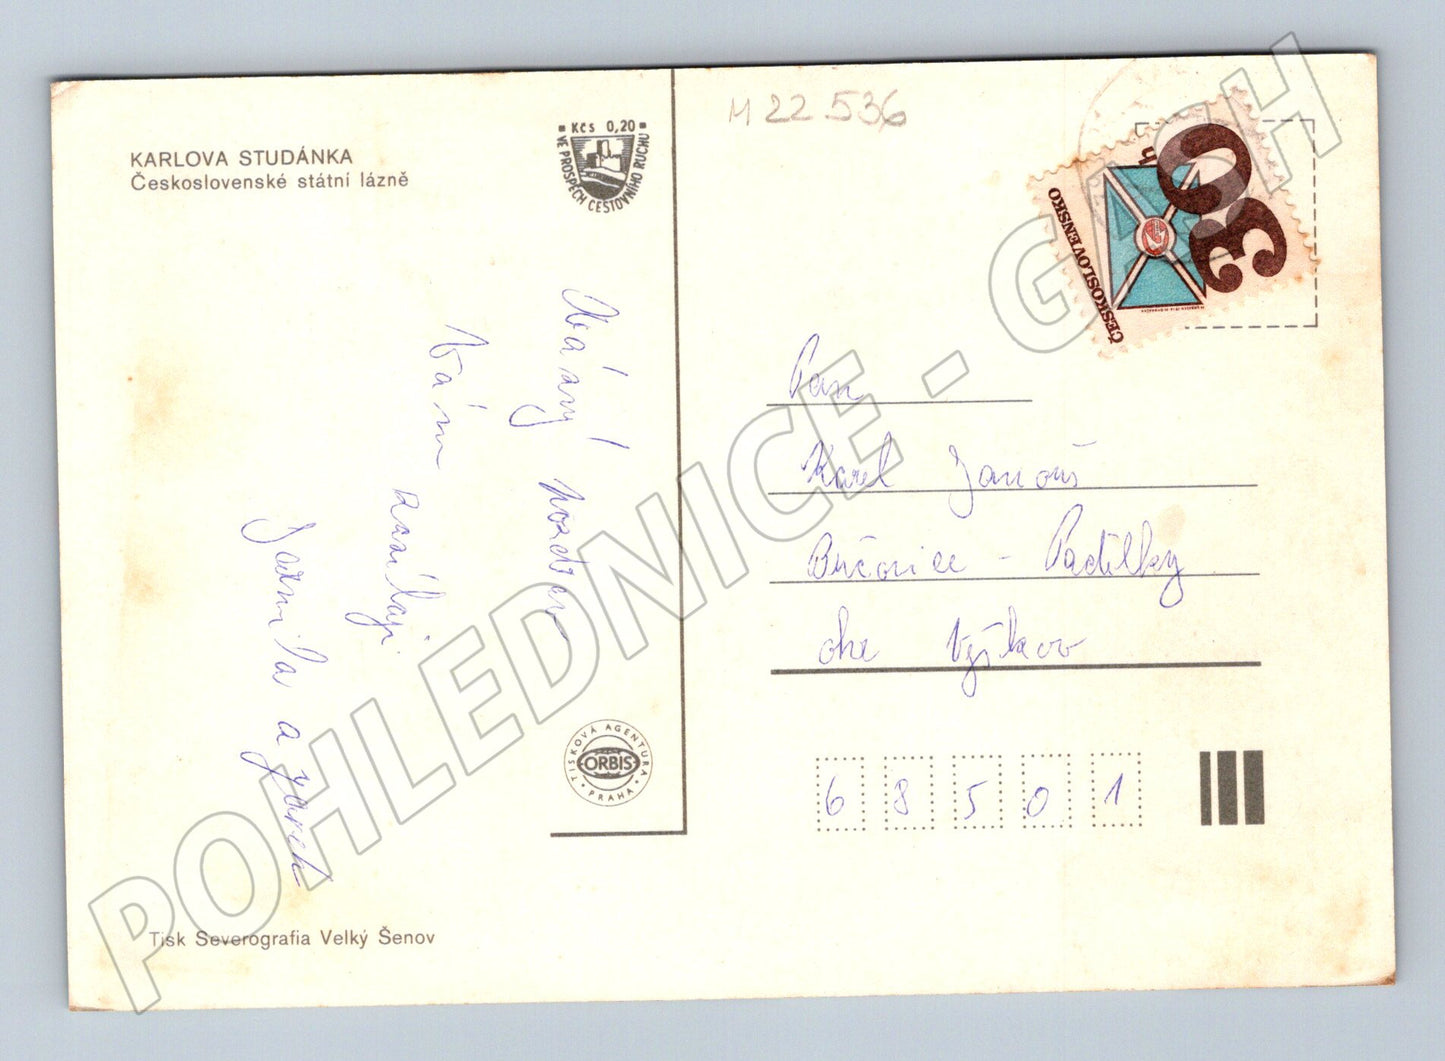 KARLOVA STUDÁNKA
Československé státní lázně
Kčs 0,20
VE PROSPĚCH CESTOVNÍHO RUCHU
M 22.536
ČESKOSLOVENSKO
30h
Krásný pozdrav
Vám
zasílají
Jarmila a Jarek
Pan
Karel Janouš
Bučovice - Padělky
okr Vyškov
TISKOVÁ AGENTURA
ORBIS
PRAHA
68501
Tisk Severografia Velký Šenov
POHLEDNICE - GASH